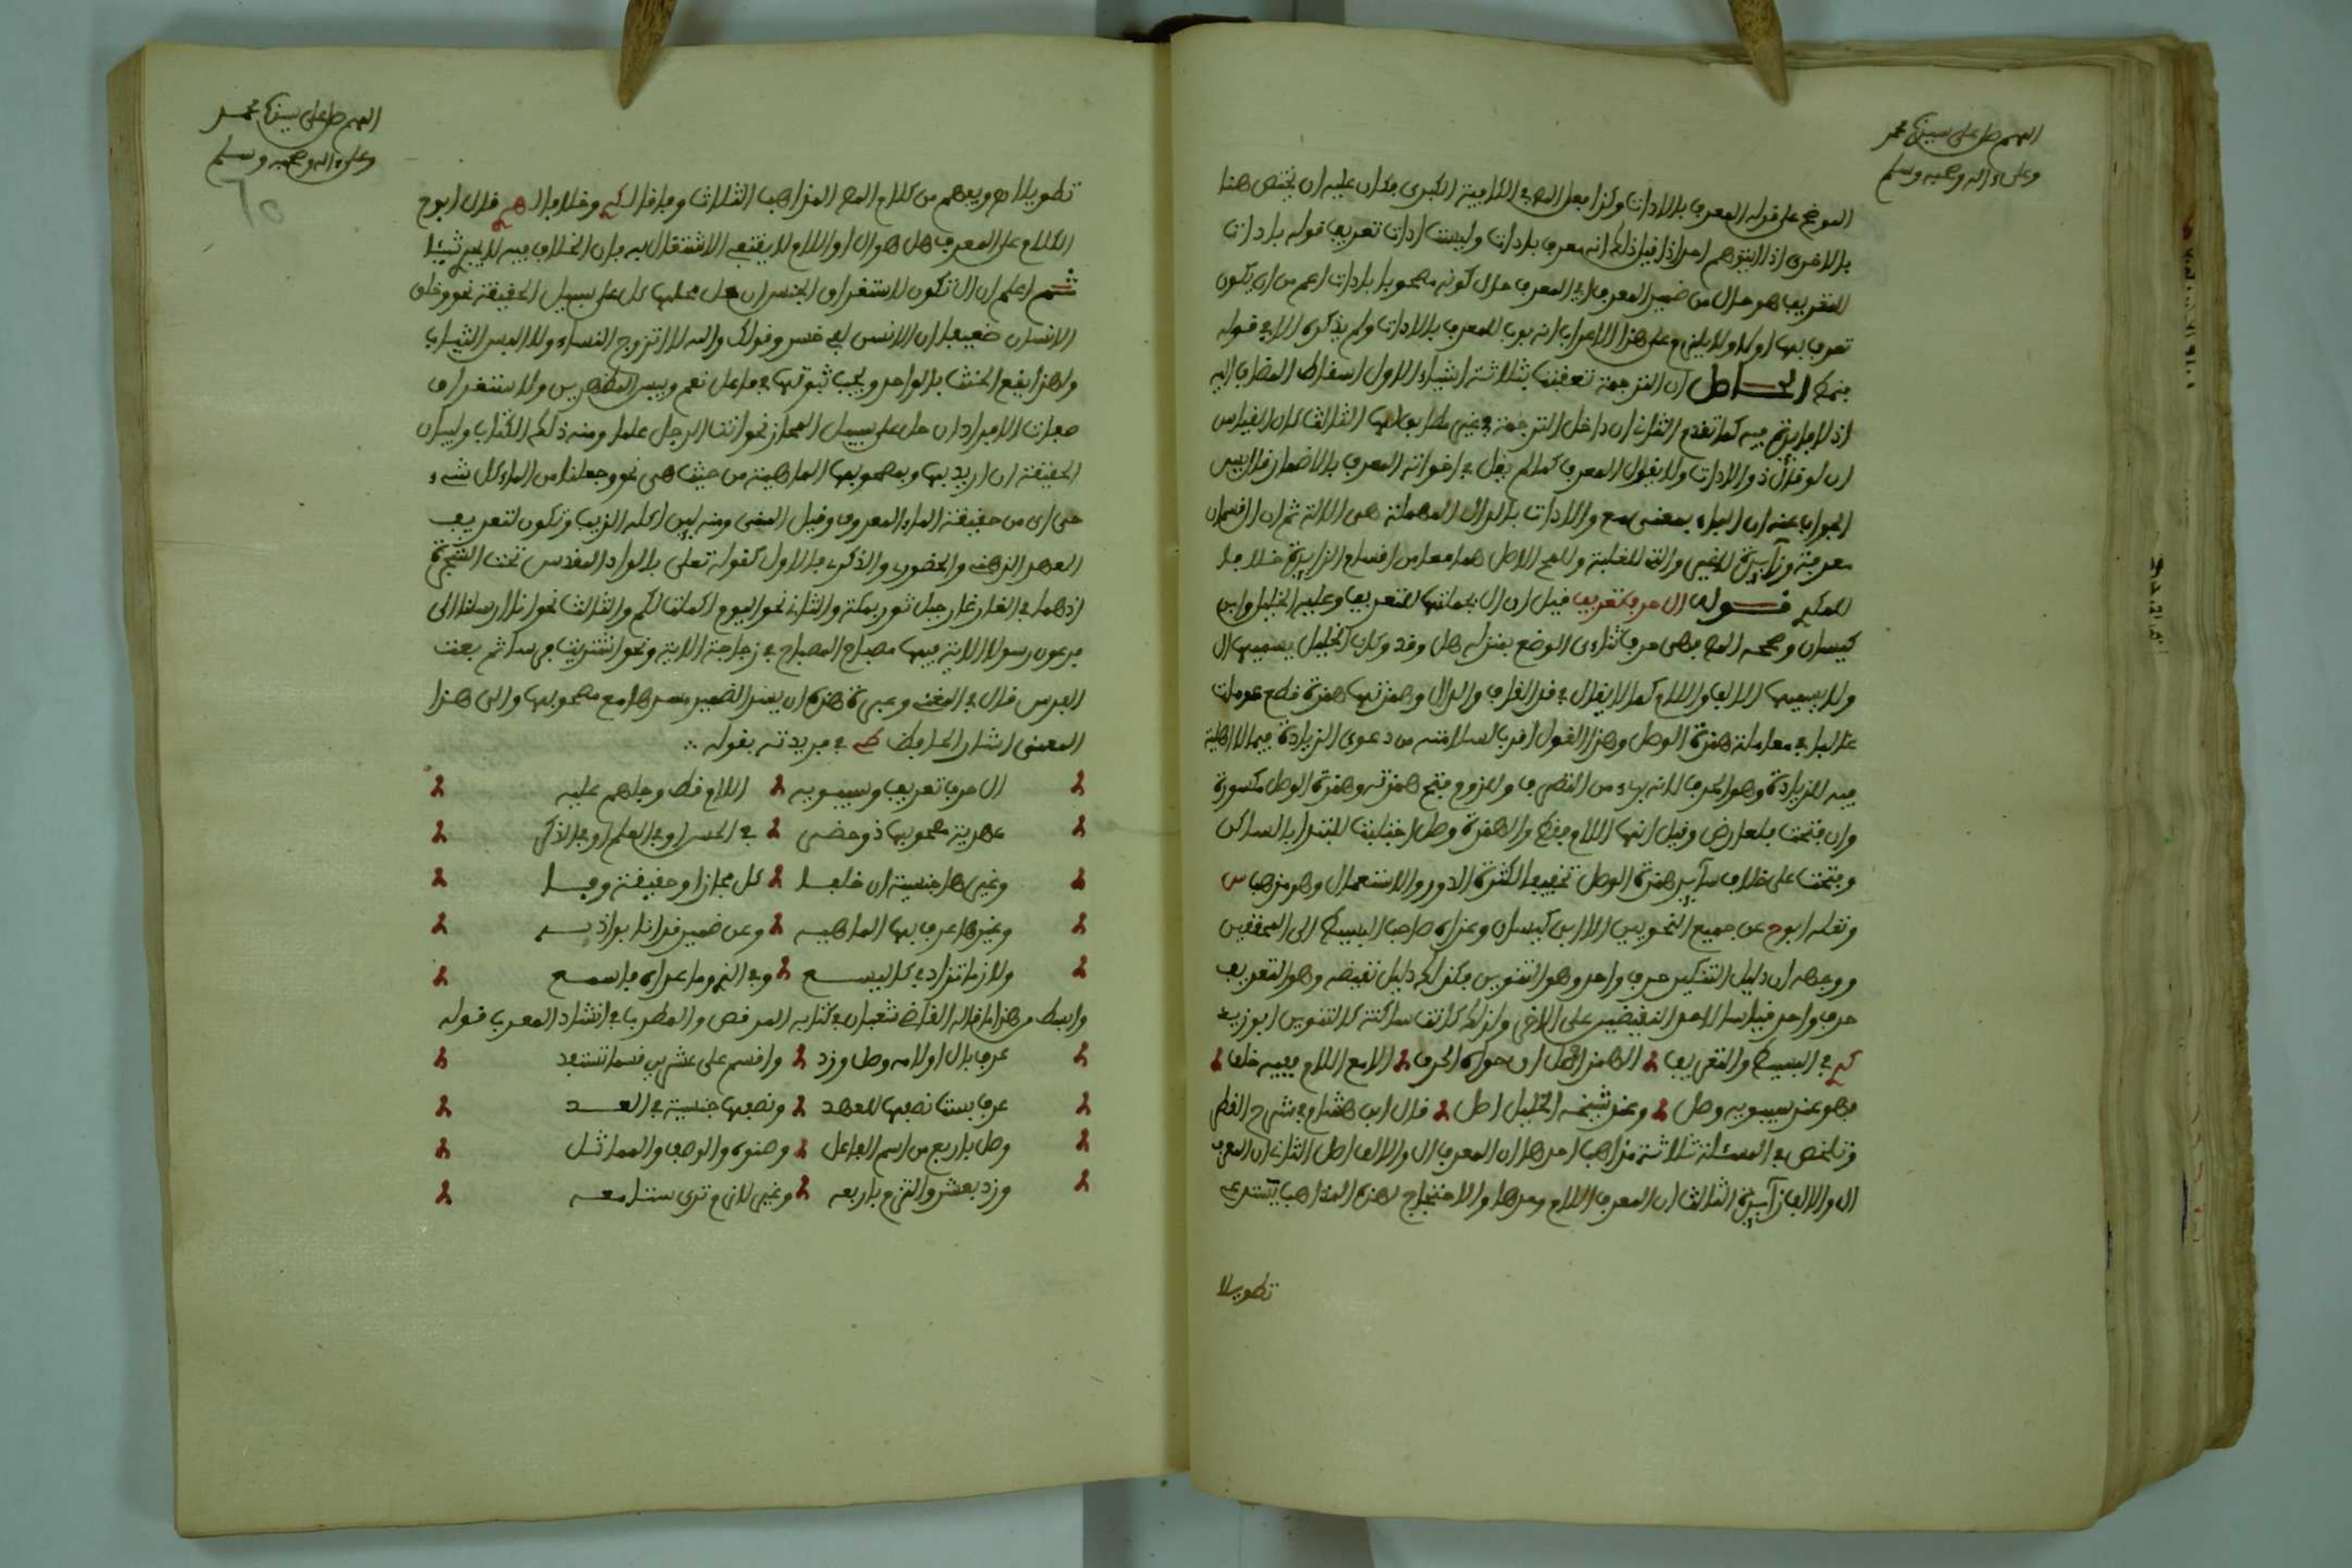 اللهم صل على سيدنا محمد
وعلى ءاله وصحبه وسلم
الموضح على قوله المعرف بالادات وكذا فعل المص في الكافية الكبرى فكان عليه ان يختص هنا
بالاخرى اذ لا يتوهم احد اذا قيل ذلك انه معرف بادات وليست ادات تعريف قوله بادات
التعريف هو حال من ضمير المعرف اي المعرف حال كونه مصحوبا بادات اعم من ان يكون
تعرف بها اولا ولا يلزم على هذا الاعراب انه بوب للمعرف بالادات ولم يذكره الا في قوله
فنمط الحاصل ان الترجمة تعقبت بثلاثة اشياء الاول اسقاط المضاف اليه
اذ لا فائدة فيه كما تقدم الثاني ان داخل الترجمة غير مطابق لها الثالث كان القياس
ان لو قال ذو الادات ولا يقول المعرف كما لم يقل في اخواته المعرف بالاضمار قال يس
الجواب عنه ان الباء بمعنى مع والادات بالدال المهملة هي الالة ثم ان ال قسمان
معرفة وزآيدة للغير والتي للغلبة وللمح الاصل هما معا من اقسام الزايدة خلافا
للمكي قوله ال حرف تعريف قيل ان ال بجملتها للتعريف وعليه الخليل وابن
كيسان وصححه المص فهي حرف ثناءي الوضع بمنزلة هل وقد وكان الخليل يسميها ال
ولا يسميها الالف واللام كما لا يقال في قد القاف والدال وهمزتها همزة قطع عوملت
غالبا في معاملة همزة الوصل وهذا القول اقرب لسلامته من دعوى الزيادة فيما لا اهلية
فيه للزيادة وهو الحرف لانه براء من التصرف وللزوم فتح همزته وهمزة الوصل مكسورة
وان فتحت فلعارض وقيل انها اللام فقط والهمزة وصل اجتلبت للابتداء بالساكن
وفتحت على خلاف سآير همزة الوصل تخفيفا لكثرة الدور والاستعمال وهو مذهب س
ونقله ابوح عن جميع النحويين الا ابن كيسان وعزاه صاحب البسيط الى المحققين
ووجهه ان دليل التنكير حرف واحد وهو التنوين فكذلك دليل نقيضه وهو التعريف
حرف واحد قياسا لاحد النقيضين على الاخر ولذلك كانت ساكنة كالتنوين ابو زيد
في البسيط والتعريف الهمز اصل ان حواه الحرف الا مع اللام ففيه خلف
فهو عند سيبويه وصل وعند شيخه الخليل اصل قال ابن هشام في شرح القطر
وتلخص في المسئلة ثلاثة مذاهب احدها ان المعرف ال والالف اصل الثاني ان المعرف
ال والالف زآيدة الثالث ان المعرف اللام وحدها والاحتجاج لهذه المذاهب يستدعي
تطويلا
اللهم صل على سيدنا محمد
وعلى ءاله وصحبه وسلم
تطويلا ويفهم من كلام المص المذاهب الثلاث وفاقا وخلافا قال ابوح
الكلام على المعرف هل هو ال او اللام لا ينبغي الاشتغال به فان الخلاف فيه لا يجدي شيئا
ثم اعلم ان ال تكون لاستغراق الجنس ان حل محلها كل على سبيل الحقيقة نحو وخلق
الانسان ضعيفا ان الانسن لفي خسر وقولك والله لا اتزوج النساء ولا البس الثياب
ولهذا يقع الحنث بالواحد ويجب ثبوتها في فاعل نعم وبيس المظهرين ولاستغراق
صفات الافراد ان حل على سبيل المجاز نحو انت الرجل علما ومنه ذلك الكتاب ولبيان
الحقيقة ان اريد بها وبمصحوبها الماهية من حيث هي نحو وجعلنا من الماء كل شيء
حي اي من حقيقة الماء المعروف وقيل المني ومنه لين اكله الذيب وتكون لتعريف
العهد الذهني والحضوري والذكري فالاول كقوله تعلى بالواد المقدس تحت الشجرة
اذ هما في الغار غار جبل ثور بمكة والثاني نحو اليوم اكملت لكم والثالث نحو انا ارسلنا الى
فرعون رسولا الاية فيها مصباح المصباح في زجاجة الاية ونحو اشتريت فرسا ثم بعت
الفرس قال في المغني وعبرة هذه ان يسد الضمير مسدها مع مصحوبها والى هذا
المعنى اشار الحافظ في فريدته بقوله
ال حرف تعريف وسيبويه اللام فقط وجلهم عليه
عهدية مصحوبها ذو حضر في الحس او في العلم او في الذكر
وغيرها جنسية ان خلفا كل مجازا وحقيقة وفا
وغيرها عرف بها الماهيه وعن ضمير قد انابوا ذيـــه
ولازما تزاد في كاليسع وفي الذي وما عداه فاسمع
وابسط من هذا ما قاله القاضي شعبان في كتابه المرقص والمطرب في انشاد المعرب قوله
عرف بال او لامه وصل وزد واقسم على عشرين قسما تستفد
عرف بست نصفها للعهد ونصفها جنسية في العد
وصل باربع من اسم الفاعل وصنوه والوصف والمماثل
وزد بعشر والتزم باربعه وغير لازم ترى ستا معه